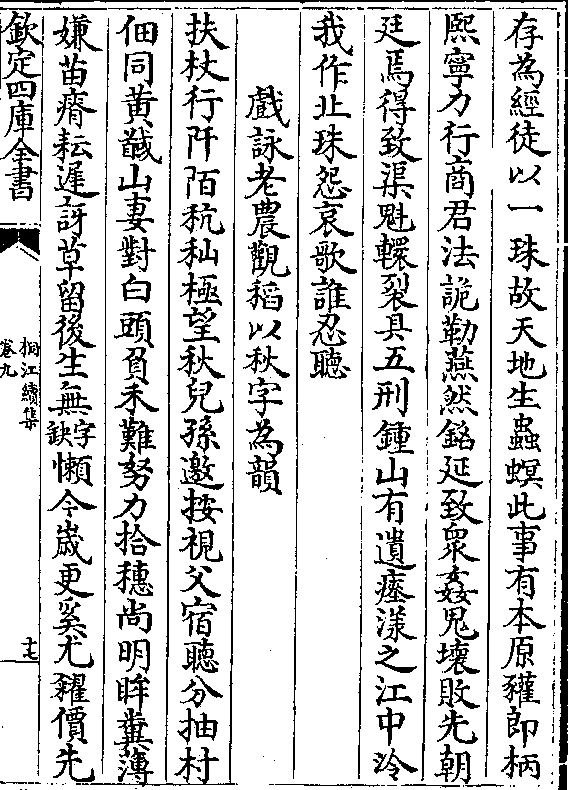 存為經徒以一珠故天地生蟲螟此事有本原貛即柄
熙寧力行商君法詭勒燕然銘延致衆姦鬼壞敗先朝
廷焉得致渠魁轘裂具五刑鍾山有遺瘞漾之江中泠
我作北珠怨哀歌誰忍聽
戲詠老農觀稻以秋字為韻
扶杖行阡陌秔秈極望秋兒孫邀按視父宿聽分抽村
佃同黄馘山妻對白頭負耒難努力拾穗尚明眸糞薄
嫌苗瘠耘遲訝草留後生無缺字懶今嵗更奚尤糴價先
欽定四庫全書
桐江續集
卷九
十七